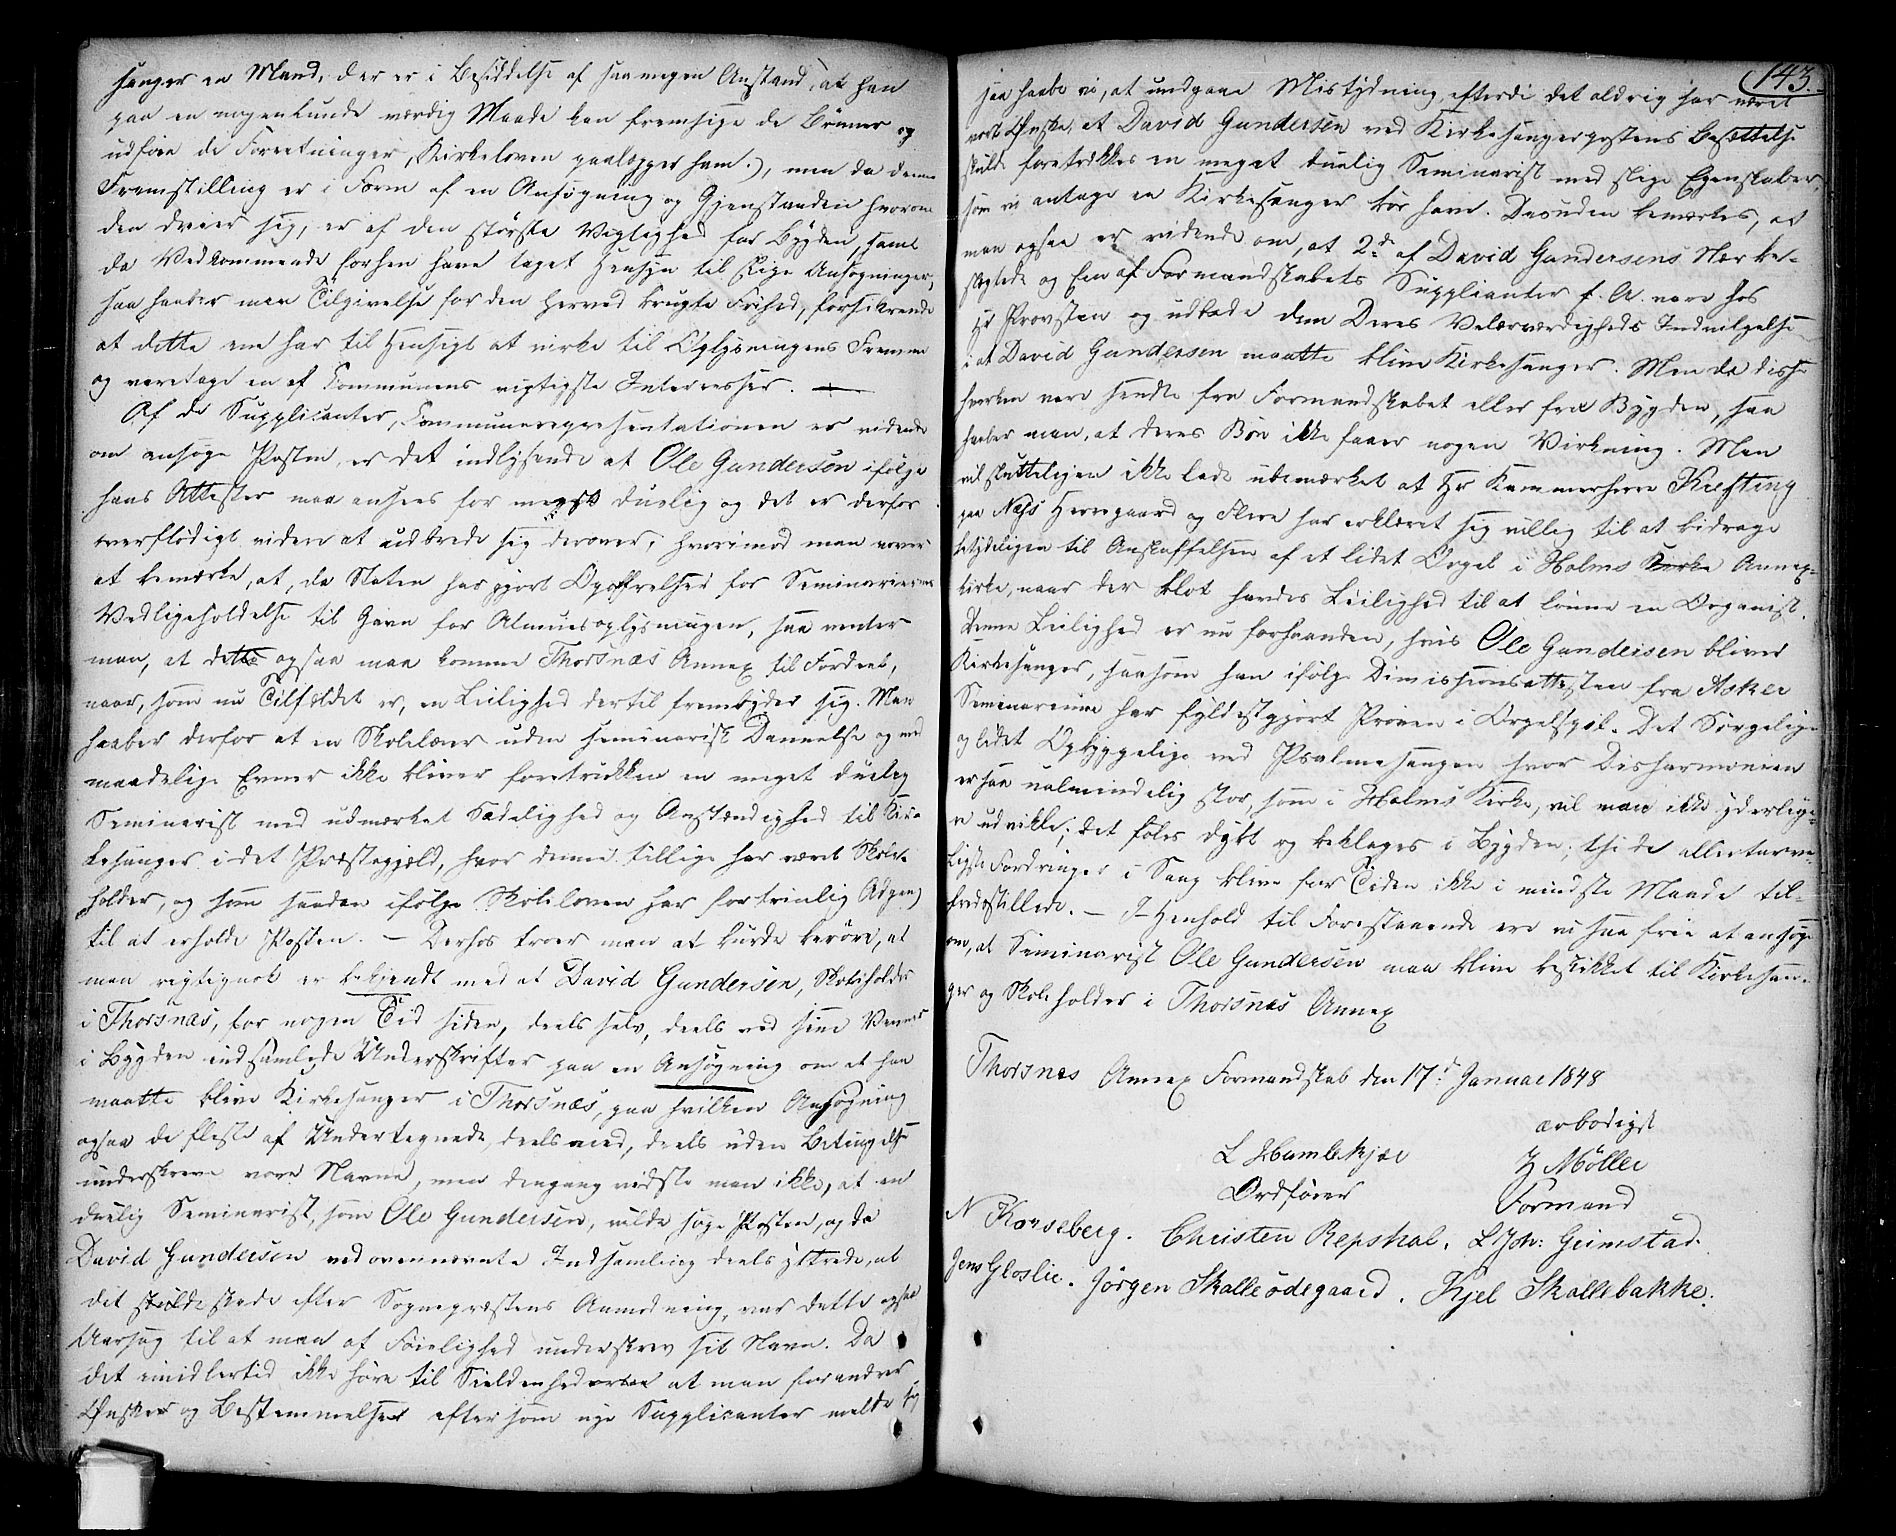 sanger en Mand, der er i Besiddelse af saa megen Anstand, at han
paa en nogenlunde værdig Maade kan fremsige de Bønner og
udføre de Forretninger, Kirkeloven paalægger ham.), men da denne
Fremstilling er i Form af en Ansøgning og Gjenstanden hvorom
den dreier sig, er af den største Vigtighed for Bygden, samt
da Vedkommende forhen have taget Hensyn til slige Ansøgninger,
saa haaber man Tilgivelse for den herved brugte Frihed, forsikrende
at dette ene har til Hensigt at virke til Oplysningens Fremme
og varetage en af Communens vigtigste Interesser. —
Af de Supplicanter, Communerepresentationen er vidende
om ansøge Posten, er det indlysende at Ole Gundersen ifølge
hans Attester maa ansees for meget duelig og det er derfor
overflødigt videre at udbrede sig derover, hvorimod man vover
at bemærke, at, da Staten har gjort Opoffrelser for Seminariernes
Vedligeholdelse til Gavn for Almuesoplysningen, saa venter
man, at dette ogsaa maa komme Thorsnæs Annex til Fordeel,
naar, som nu Tilfældet er, en Leilighed dertil frembyder sig. Man
haaber derfor at en Skolelærer uden seminarisk Dannelse og med
maadelige Evner ikke bliver foretrukken en meget duelig
Seminarist med udmærket Sædelighed og Anstændighed til Kir-
kesanger i det Præstegjæld, hvor denne tillige har været Skole-
holder, og som saadan ifølge Skoleloven har fortrinlig Adgang
til at erholde Posten. — Derhos troer man at burde berøre, at
man rigtignok er bekjendt med at David Gundersen, Skoleholder
i Thorsnæs, for nogen Tid siden, deels selv, deels ved sine Venner
i Bygden indsamlede Underskrifter paa en Ansøgning om at han
maatte blive Kirkesanger i Thorsnæs, paa hvilken Ansøgning
ogsaa de fleste af Undertegnede, deels med, deels uden Betingelse
underskreve vore Navne, men dengang vidste man ikke, at en
duelig Seminarist, som Ole Gundersen, vilde søge Posten, og da
David Gundersen ved ovennævnte Indsamling deels yttrede, at
det skulde skede efter Sognepræstens Anmodning, var dette ogsaa
Aarsag til at man af Føielighed underskrev sit Navn. Da
det imidlertid ikke hører til Sjeldenhederne at man forandrer
Ønsker og Bestemmelser eftersom nye Supplicanter melde sig
143.
saa haabe vi, at undgaae Mistydning, efterdi det aldrig har været
vort Ønske, at David Gundersen ved Kirkesangerpostens Besættelse
skulde foretrækkes en meget duelig Seminarist med slige Egenskaber,
som vi antage en Kirkesanger bør have. Desuden bemærkes, at
man ogsaa er vidende om, at 2de af David Gundersens Nærbe-
slægtede og Een af Formandskabets Supplianter f. A. vare hos
Hr Provsten og udbade dem Deres Velærværdigheds Indvilgelse
i at David Gundersen maatte blive Kirkesanger. Men da disse
hverken vare sendte fra Formandskabet eller fra Bygden, saa
haaber man, at deres Bøn ikke faaer nogen Virkning. Man
vil sluttelijen ikke lade ubemærket at Hr Kammerherre Kiefting
paa Næs Herregaard og Flere har erklæret sig villig til at bidrage
betydeligen til Anskaffelsen af et lidet Orgel i Holms Kirke Annex-
kirke, naar der blot havdes Leilighed til at lønne en Organist.
Denne Leilighed er nu forhaanden, hvis Ole Gundersen bliver
Kirkesanger, saasom han ifølge Dimissionsattesten fra Asker
Seminarium har fyldestgjort Prøven i Orgelspil. Det Sørgelige
og lidet Opbyggelige ved Psalmesangen hvor Disharmonien
er saa ualmindelig stor, som i Holms Kirke, vil man ikke yderlige-
re udvikle; det føles dybt og beklages i Bygden; thi de allertarve-
ligste Fordringer i Sang blive for Tiden ikke i mindste Maade til-
fredsstillede. — I Henhold til Forestaaende ere vi saa frie at ansøge
om, at Seminarist Ole Gundersen maa blive beskikket til Kirkesan-
ger og Skoleholder i Thorsnæs Annex
Thorsnæs Annex Formandskab den 17de Januar 1848
ærbødigst
L Humlekjær J Møller
Ordfører Formand
N Korseberg. Christen Repshal. L Joh: Grimstad.
Jens Gloslie. Jörgen Skalleødegaard. Kjel Skallebakke.